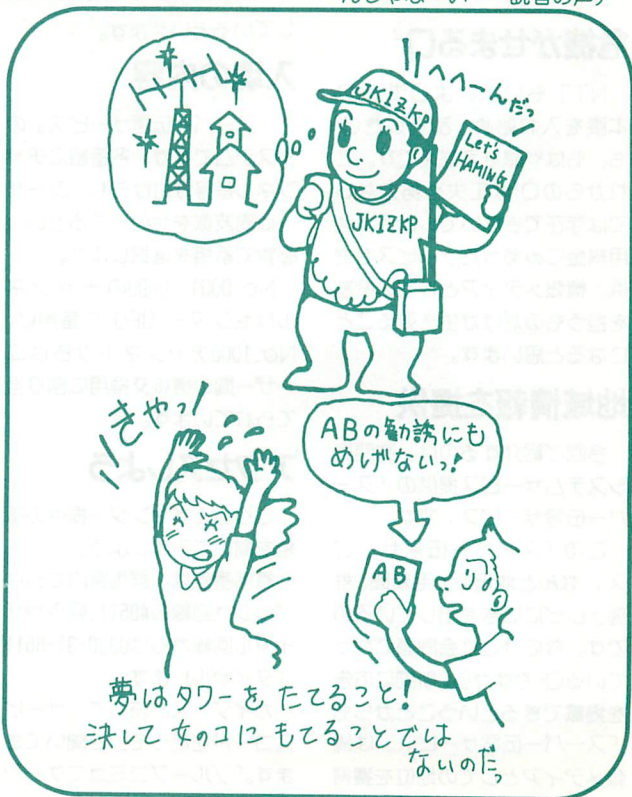 へへーんだっ
JK1ZKP
Let's
HAMING
JK1ZKP
きゃっ!
ABの勧誘にも
めげないっ!
AB
夢はタワーをたてること!
決して女のコにもてることでは
ないのだっ